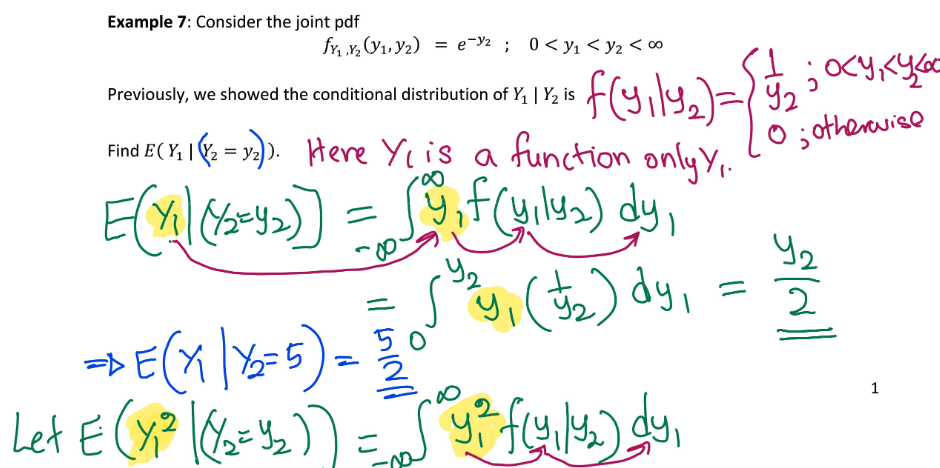 Example 7: Consider the joint pdf
f_{Y₁,Y₂}(y₁,y₂) = e^{-y₂} ; 0 < y₁ < y₂ < ∞
Previously, we showed the conditional distribution of Y₁ | Y₂ is f(y₁|y₂) = { 1/y₂ ; 0<y₁<y₂<∞
0 ; otherwise
Find E( Y₁ | (Y₂ = y₂)). Here Y₁ is a function only Y₁.
E(Y₁|(Y₂=y₂)) = ∫_{-∞}^{∞} y₁ f(y₁|y₂) dy₁
= ∫_0^{y₂} y₁ (1/y₂) dy₁ = y₂/2
⇒ E(Y₁ | Y₂=5) = 5/2
1
Let E(Y₁² | (Y₂=y₂)) = ∫_{-∞}^{∞} y₁² f(y₁|y₂) dy₁